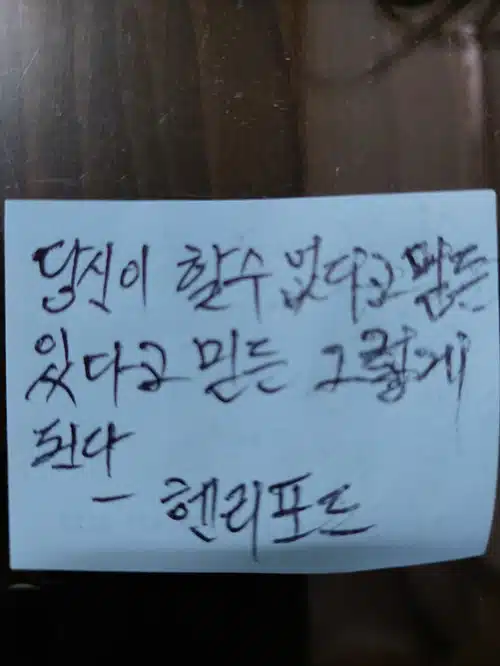 당신이 할수 없다고 믿든
있다고 믿든 그렇게
된다
- 헨리포드